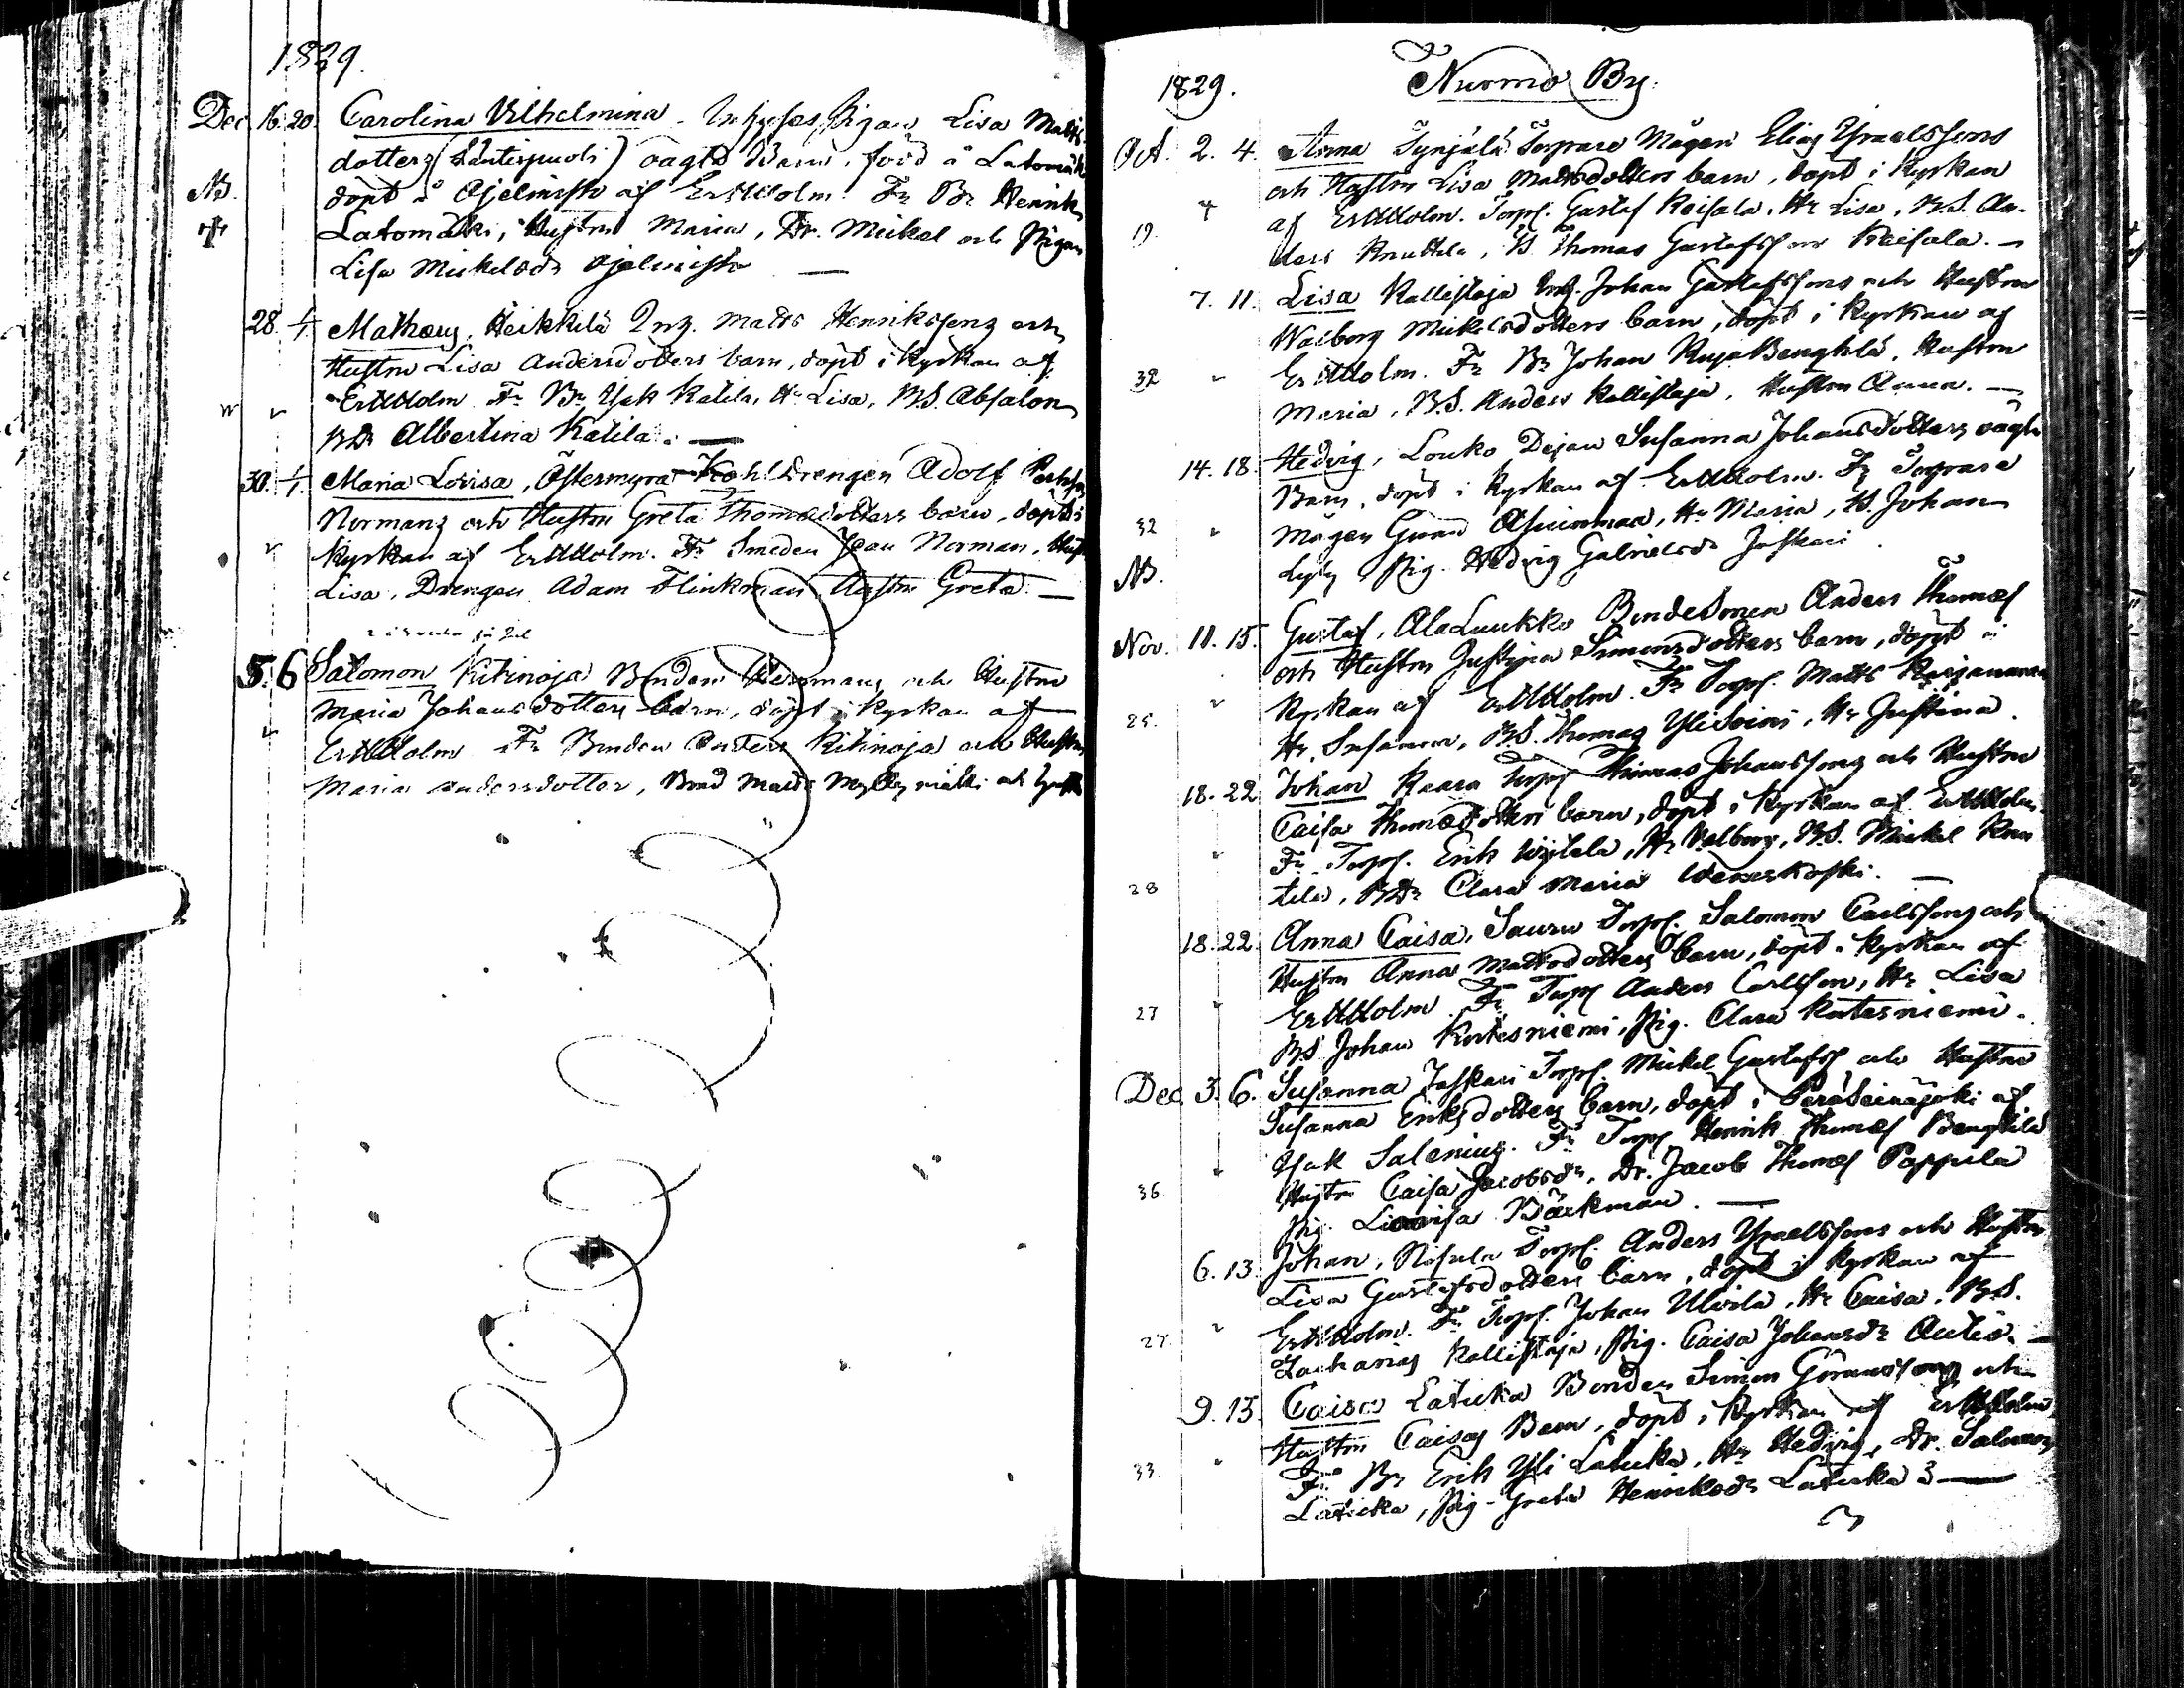 1829.
Dec. 16. 20. Carolina Vilhelmina. Inhyses Pigan Lisa Matts
dotters (Säntispuoli) oägta Barn, född å Latomäki
NB. döpt å Ojelmisto af Er. Wolm. Fr Br Henrik
Latomäki, Hustru Maria, Dr. Mickel och Pigan
Lisa Mickelsdr Ojelmisto —
28. 1/1. Mathæus, Heikkilä Inh. Matts Henrikssons och
Hustru Lisa Andersdotters barn, döpt i Kyrkan af
ErWolm Fr Br Isak Katila, Hr Lisa, BS. Absalon
BDr Albertina Katila. —
30. 1/1. Maria Lovisa, Östermyra Drengen Adolf
Normans och Hustru Greta Thomædotters barn, döpt i
Kyrkan af ErWolm. Fr Smeden Norman, Hust
Lisa, Drengen Adam Flinkman Hustru Greta —
5. 6 Salomon Kitinoja Bonden Hermans och Hustru
Maria Johansdotters barn, döpt i Kyrkan af
ErWolm Fr Bonden Anders Kitinoja och Hustru
Maria Andersdotter, Bond Matts Myllymäki och
1829. Nurmo By.
Oct. 2. 4. Anna Tynjälä Torpare Mågen Elias Israelssons
och Hustru Lisa Mattsdotters barn, döpt i Kyrkan
af ErWolm. Torp. Gustaf Keisala, Hr Lisa, B.S. An-
19. ders Knuttila, Thomas Gustafsson Keisala. —
7. 11. Lisa Kallistaja Inh. Johan Gustafssons och Hustru
Walborg Mickelsdotters barn, döpt i Kyrkan af
32 ErWolm. Fr Br Johan Hustru
Maria, B.S. Anders Kallistaja, Hustru Anna. —
14. 18. Hedvig, Louko Dejan Susanna Johansdotters oägta
Barn, döpt i Kyrkan af ErWolm. Fr Torpare
32 Mågen Hr Maria, Johan
NB. Pig. Hedvig Gabrielsdr Jaskari
Nov. 11. 15. Gustaf, AlaLuukko Bondesonen Anders Thomæs
och Hustru Justina Simonsdotters barn, döpt i
Kyrkan af ErWolm. Fr Torp. Matts
25. Hr Susanna, B.S. Thomas Hr Justina.
18. 22 Johan Kaara Torp Thomas Johanssons och Hustru
Caisa Thomædotters barn, döpt i Kyrkan af ErWolm
Fr Torp. Erik Hr Valborg, B.S. Mickel Knu
28 tila, BDr Clara Maria Weneskoski. —
18. 22. Anna Caisa, Sauru Torp. Salomon Carlssons och
Hustru Anna Mattsdotters barn, döpt i Kyrkan af
27 ErWolm. Fr Torp Anders Carlsson, Hr Lisa
BS Johan Kortesniemi, Pig. Clara Kortesniemi.
Dec. 3. 6. Susanna Jaskari Torp. Mickel Gustafss och Hustru
Susanna Eriksdotters barn, döpt i Peräseinäjoki af
Isak Salenius. Fr Torp Henrik Thomæs
36. Hustru Caisa Jacobsdr, Dr. Jacob Thomæs Poppula
Pig. Lovisa Bäckman. —
6. 13. Johan, Torp. Anders Israelssons och Hustru
Lisa Gustafsdotters barn, döpt i Kyrkan af
ErWolm. Fr Torp. Johan Hr Caisa, B.S.
27. Zacharias Kallistaja, Pig. Caisa Johansdr Antis. —
9. 13. Caisa Latukka Bonden Simon Göranssons och
Hustru Caisas Barn, döpt i Kyrkan af ErWolm
33. Fr Br Erik Yli Latukka, Hr Hedvig, Dr. Salomon
Latukka, Pig. Greta Henriksdr Latukka —